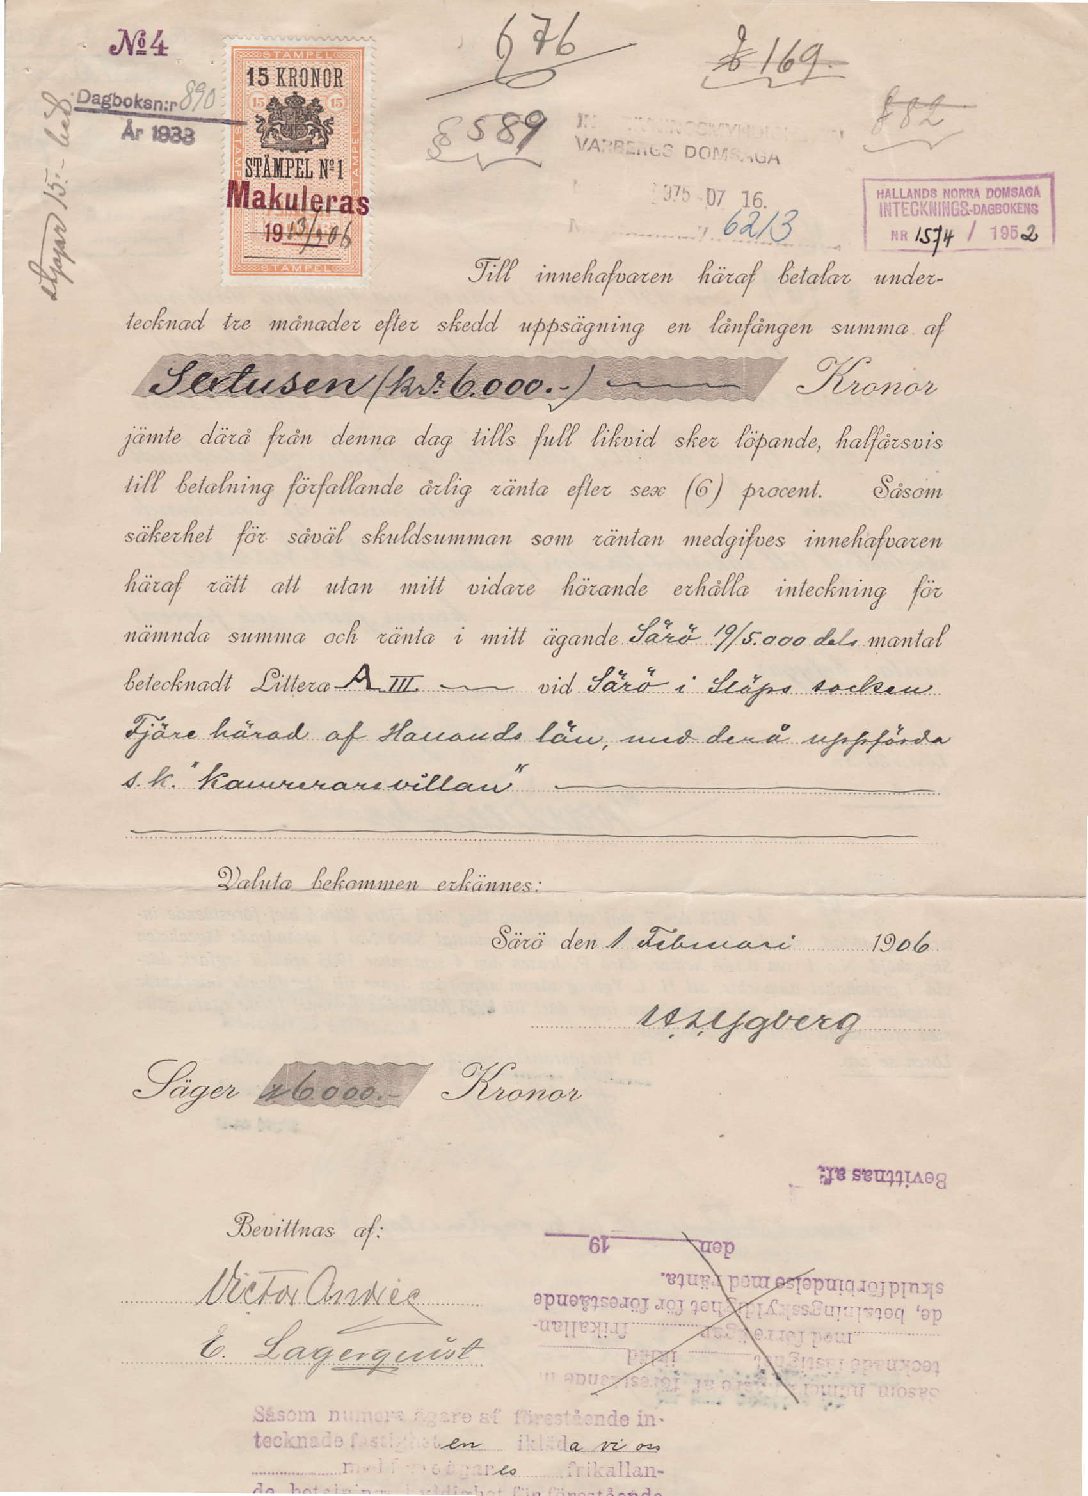 № 4
676
§ 169.
§ 82
Dagboksn:r 890
År 1933
§ 589
15 KRONOR
STÄMPEL Nº 1
Makuleras
1913/5 06
VARBERGS DOMSAGA
1975 -07 16.
6213
HALLANDS NORRA DOMSAGA
INTECKNINGS-DAGBOKENS
NR 1574 / 1952
Till innehafvaren häraf betalar under-
tecknad tre månader efter skedd uppsägning en lånfången summa af
Sextusen (kr. 6.000.-) Kronor
jämte därå från denna dag tills full likvid sker löpande, halfårsvis
till betalning förfallande årlig ränta efter sex (6) procent. Såsom
säkerhet för såväl skuldsumman som räntan medgifves innehafvaren
häraf rätt att utan mitt vidare hörande erhålla inteckning för
nämnda summa och ränta i mitt ägande Särö 19/5.000 dels mantal
betecknadt Littera A III vid Särö i Släps socken
Fjäre härad af Hallands län, med derå uppförda
s.k. "Kamrerarevillan"
Valuta bekommen erkännes:
Särö den 1 Februari 1906
Ygberg
Säger 6000.- Kronor
Bevittnas af:
Bevittnas af:
den 19
skuldförbindelse med ränta.
de, betalningsskyldighet för förestående
med förre ägar frikallan-
tecknade fastighet ikläd
Såsom numera ägare af förestående in-
Victor
E. Lagerquist
Såsom numera ägare af förestående in-
tecknade fastigheten ikläda vi oss
med förre ägares frikallan-
de, betalningsskyldighet för förestående